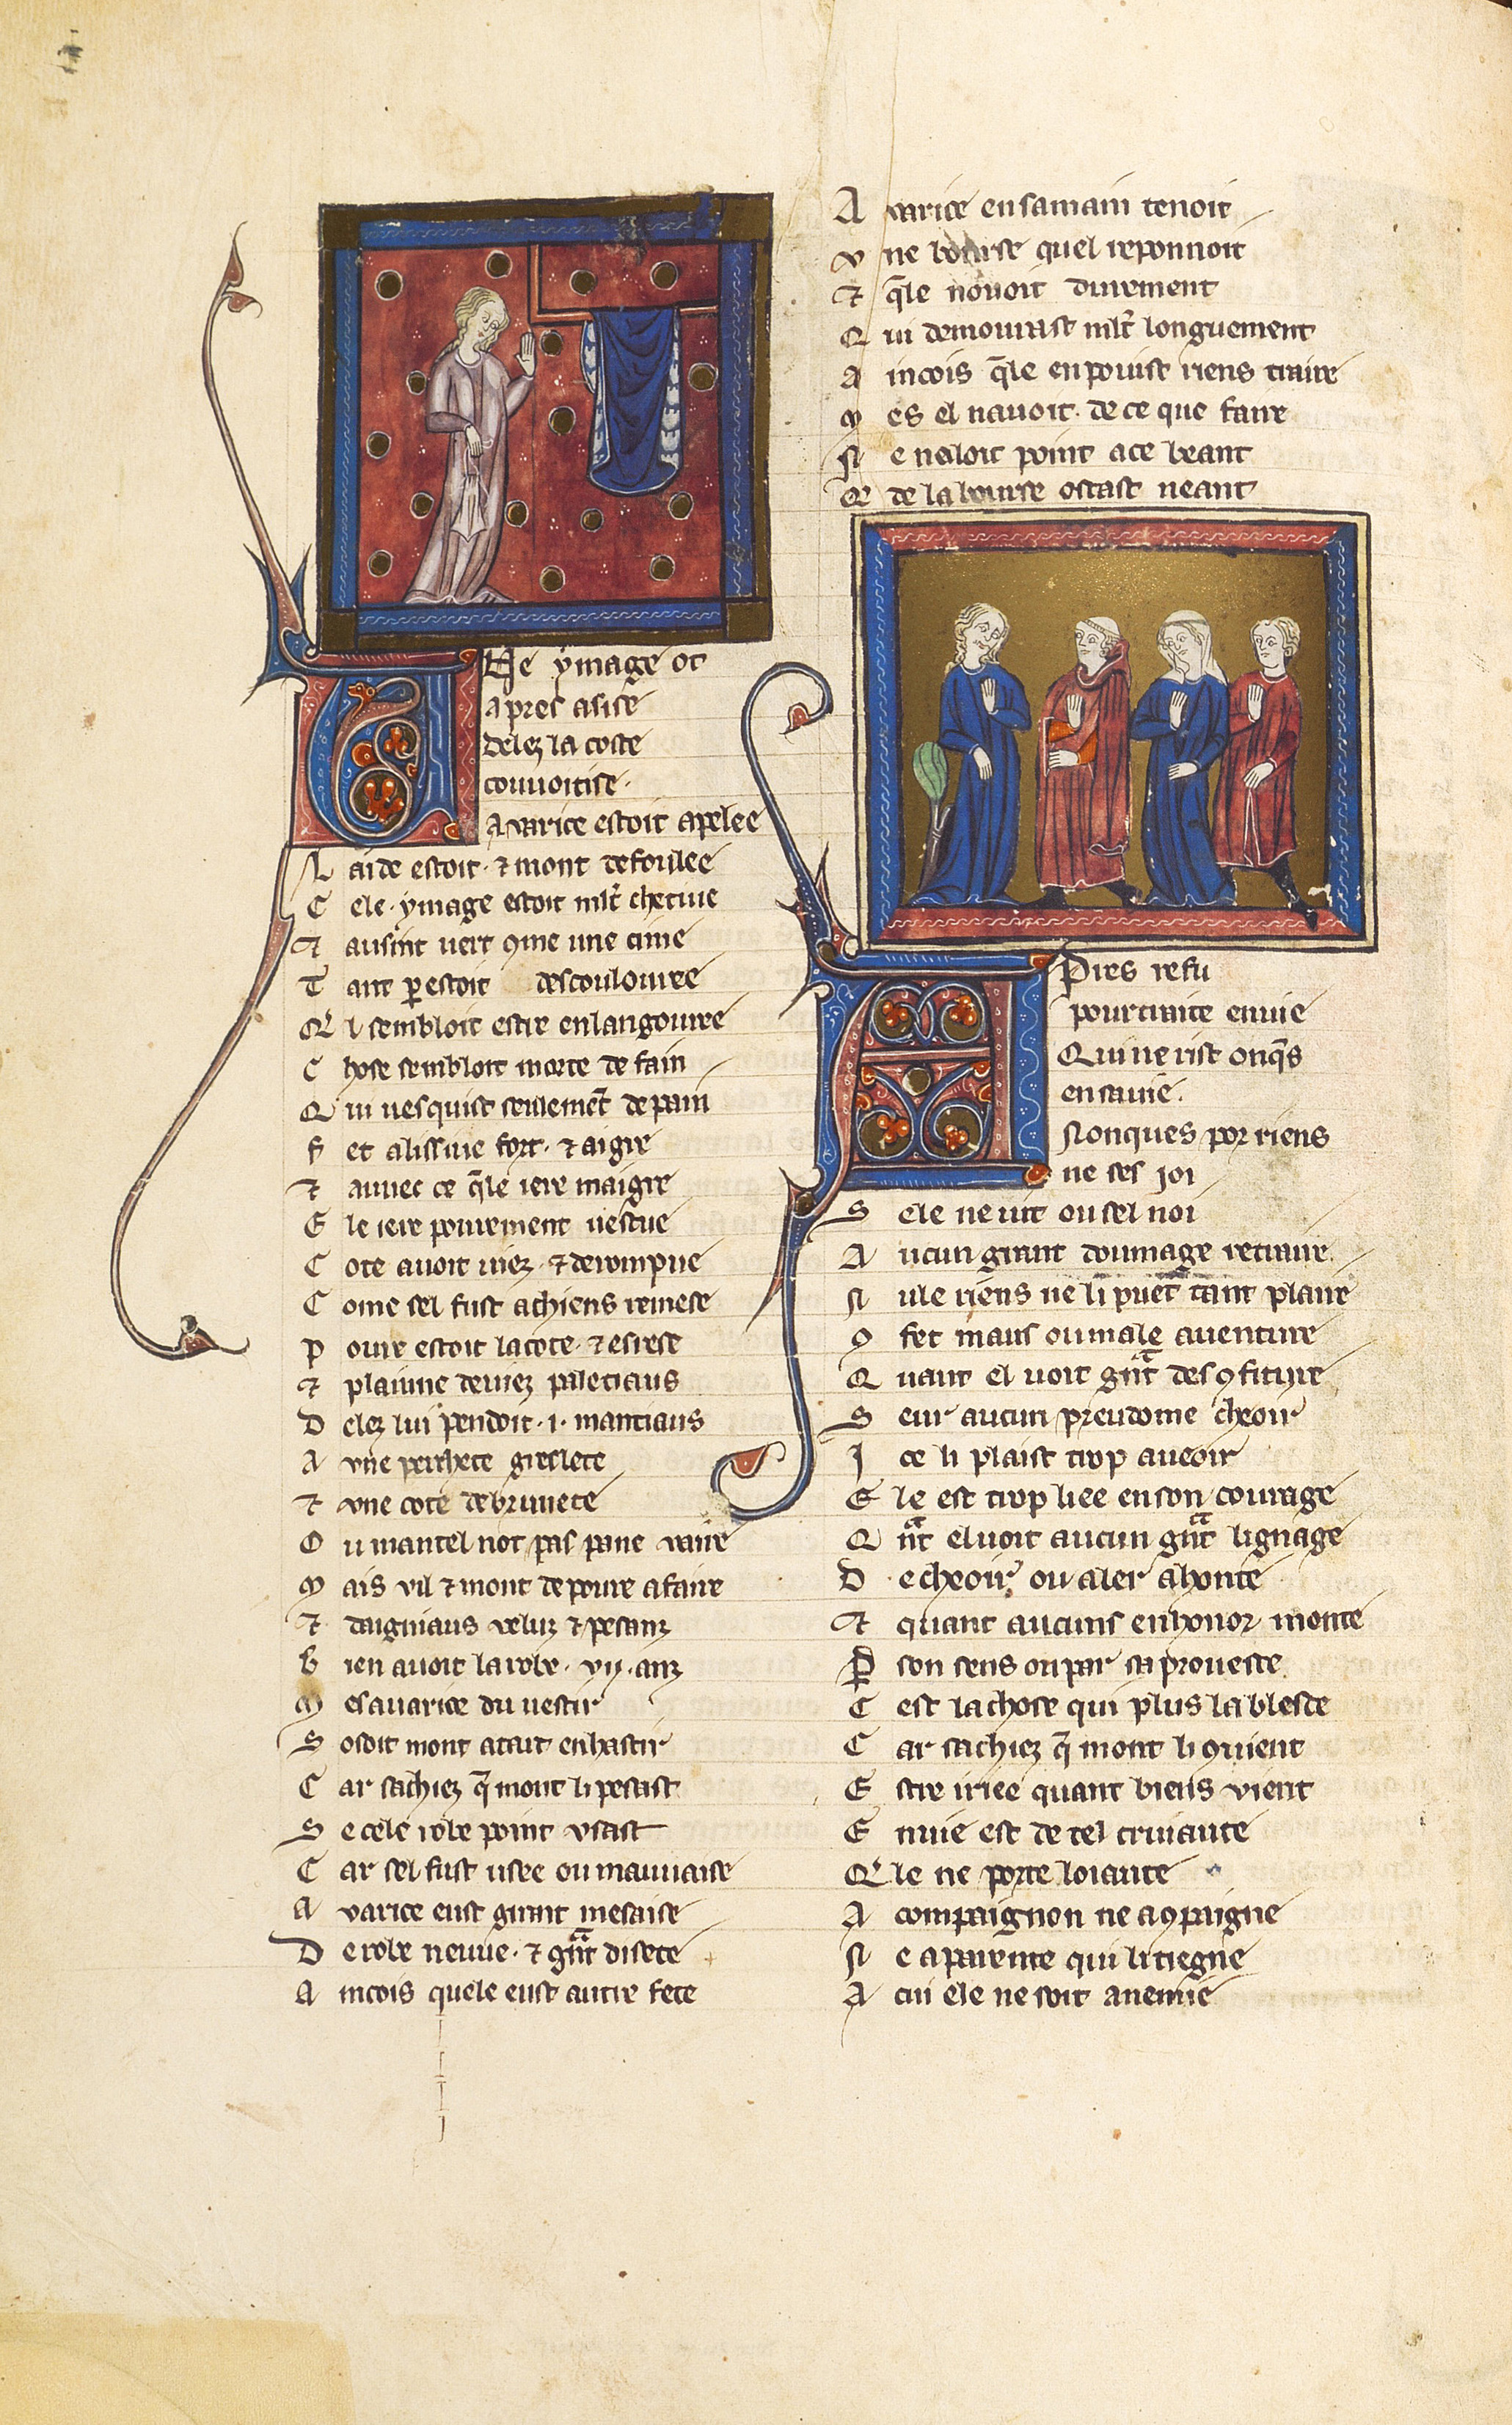 Une ymage ot
apres asise
delez la coste
couuoitise.
Auarice estoit apelee
Laide estoit. ⁊ mont defoulee
Cele. ymage estoit ml̃t chetiue
⁊ ausint uert 9me une ciue
Tant p̱ estoit descoulouree
Ql sembloit estre enlangouree
Chose sembloit morte de fain
Qui uesquist seulemẽt de pain
Fet alissiue fort. ⁊ aigre
⁊ auuec ce q̄le iere maigre
Ele iere pourement uestue
Cote auoit uiez. ⁊ derompue
Come sel fust achiens remese
Poure estoit la cote. ⁊ esrese
⁊ plainne deuiez paletiaus
Delez lui pendoit .i. mantiaus
A vne perchete greslete
⁊ vne cote debrunete
Ou mantel not pas pane vaire
Mais vil ⁊ mont de poure afaire
⁊ daigniaus veluz ⁊ pesanz
Bien auoit la robe .vij. anz
Mes auarice du uestir
Sosoit mont atart enhastir
Car sachiez q̄ mont li pesast
Se cele robe point vsast
Car sel fust usee ou mauuaise
Auarice eust grant mesaise
De robe neuue. ⁊ gñt disete
Aincois quele eust autre fete
Auarice en sa main tenoit
Vne bourse quel reponnoit
⁊ q̄le nouoit durement
Qui demourast ml̃t longuement
Aincois q̄le en pouist riens traire
Mes el nauoit. de ce que faire
Ne naloit point a ce beant
Q̃ de la bourse ostast neant
Apres refu
pourtraite enuie
Qui ne rist onq̄s
en sa uie.
Nonques por riens
ne ses joi
Sele ne uit ou sel noi
Aucun grant doumage retraire.
Nule riens ne li puet tant plaire
9 fet maus ou male auenture
Quant el uoit gñt des9fiture
Seur aucun preudome cheoir
Ice li plaist trop aueoir
Ele est trop liee en son courage
Qñt el uoit aucun gñt lignage
De cheoir ou aler a honte
⁊ quant aucuns en honor monte
P̱ son sens ou par sa prouesce.
Cest la chose qui plus la blesce
Car sachiez q̄ mont li 9uient
Estre iriee quant biens vient
Enuie est de tel cruiaute
Q̃le ne porte loiaute
A compaignon ne a 9paigne
Ne a parente qui li tiegne
A cui ele ne soit anemie